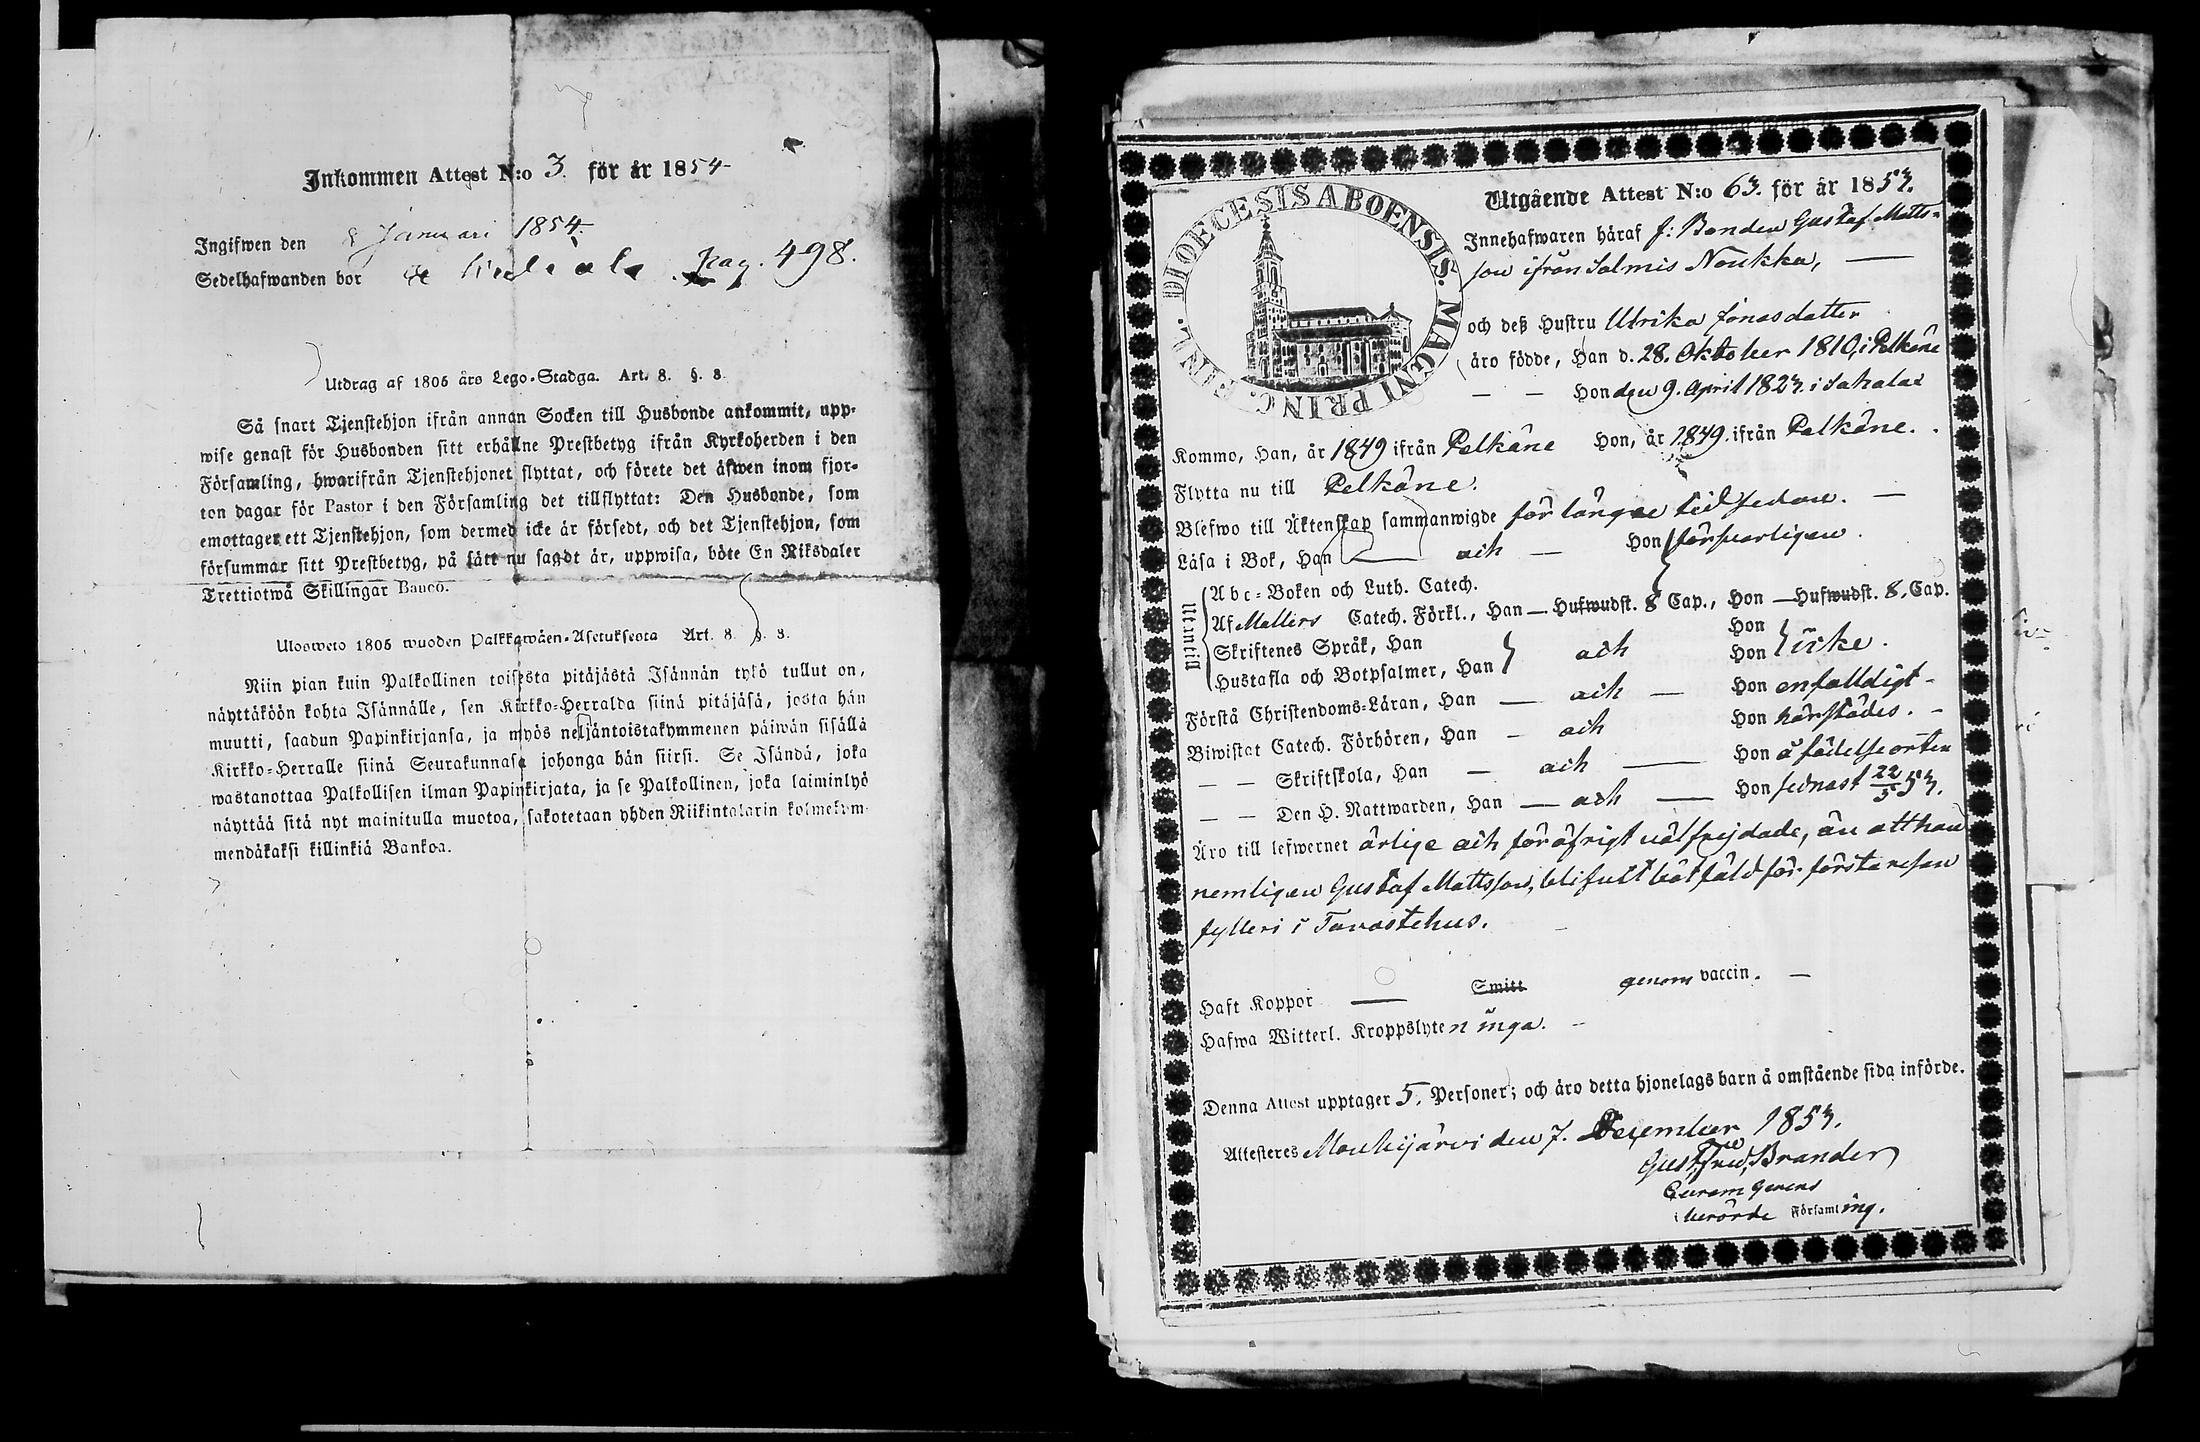 Inkommen Attest N:o 3. för år 1854
Ingifwen den 8 Januari 1854.
Sedelhafwanden bor pag. 498.
Utdrag af 1805 års Lego-Stadga. Art. 8. §. 8.
Så snart Tjenstehjon ifrån annan Socken till Husbonde ankommit, upp-
wise genast för Husbonden sitt erhållne Prestbetyg ifrån Kyrkoherden i den
Församling, hwarifrån Tjenstehjonet flyttat, och förete det äfwen inom fjor-
ton dagar för Pastor i den Församling det tillflyttat: Den Husbonde, som
emottager ett Tjenstehjon, som dermed icke är försedt, och det Tjenstehjon, som
försummar sitt Prestbetyg, på sätt nu sagdt är, uppwisa, böte En Riksdaler
Trettiotwå Skillingar Banco.
Ulosweto 1805 wuoden Palkkawäen-Asetuksesta Art. 8. §. 8.
Niin pian kuin Palkollinen toisesta pitäjästä Isännän tykö tullut on,
näyttäköön kohta Isännälle, sen Kirkko-Herralda siinä pitäjäsä, josta hän
muutti, saadun Papinkirjansa, ja myös neljäntoistakymmenen päiwän sisällä
Kirkko-Herralle siinä Seurakunnasa johonga hän siirsi. Se Isändä, joka
wastanottaa Palkollisen ilman Papinkirjata, ja se Palkollinen, joka laiminlyö
näyttää sitä nyt mainitulla muotoa, sakotetaan yhden Riikintalarin kolmekym-
mendäkaksi killinkiä Bankoa.
DIOECESIS ABOENSIS. MAGNI PRINC. FINL.
Utgående Attest N:o 63. för år 1853.
Innehafwaren häraf f: Bonden Gustaf Matts-
son ifrån Salmis Noukka, —
och deß Hustru Ulrika Jonasdotter
äro födde, Han d. 28. Oktober 1810, i Pelkäne
— — Hon den 9. April 1823. i Sahalax
Kommo, Han, år 1849 ifrån Pelkäne Hon, år 1849. ifrån Pelkäne.
Flytta nu till Pelkäne.
Blefwo till Äktenskap sammanwigde för längre tid sedan. —
Läsa i Bok, Han — och — Hon försvarligen.
Utntill
Abc-Boken och Luth. Catech.
Af Mallers Catech. Förkl., Han — Hufwudst. 8 Cap., Hon — Hufwudst. 8. Cap.
Skriftenes Språk, Han och Hon icke.
Hustafla och Botpsalmer, Han Hon
Förstå Christendoms-Läran, Han — och — Hon enfalldigt -
Biwistat Catech. Förhören, Han — och Hon härstädes. -
— — Skriftskola, Han — och — Hon å födelseorten
— — Den H. Nattwarden, Han — och — Hon sednast 22/5 53.
Äro till lefwernet ärlige och föröfrigt välfrejdade, än att han
nemligen Gustaf Mattsson, blifvit bötfäld för första resan
fylleri i Tavastehus.
Haft Koppor — Smitt genom vaccin. —
Hafwa Witterl. Kroppslyten inga. -
Denna Attest upptager 5. Personer; och äro detta hjonelags barn å omstående sida införde.
Attesteras Mouhijärvi den 7. December 1853.
Gust. Brander
Curam gerens
i berörde Församling.